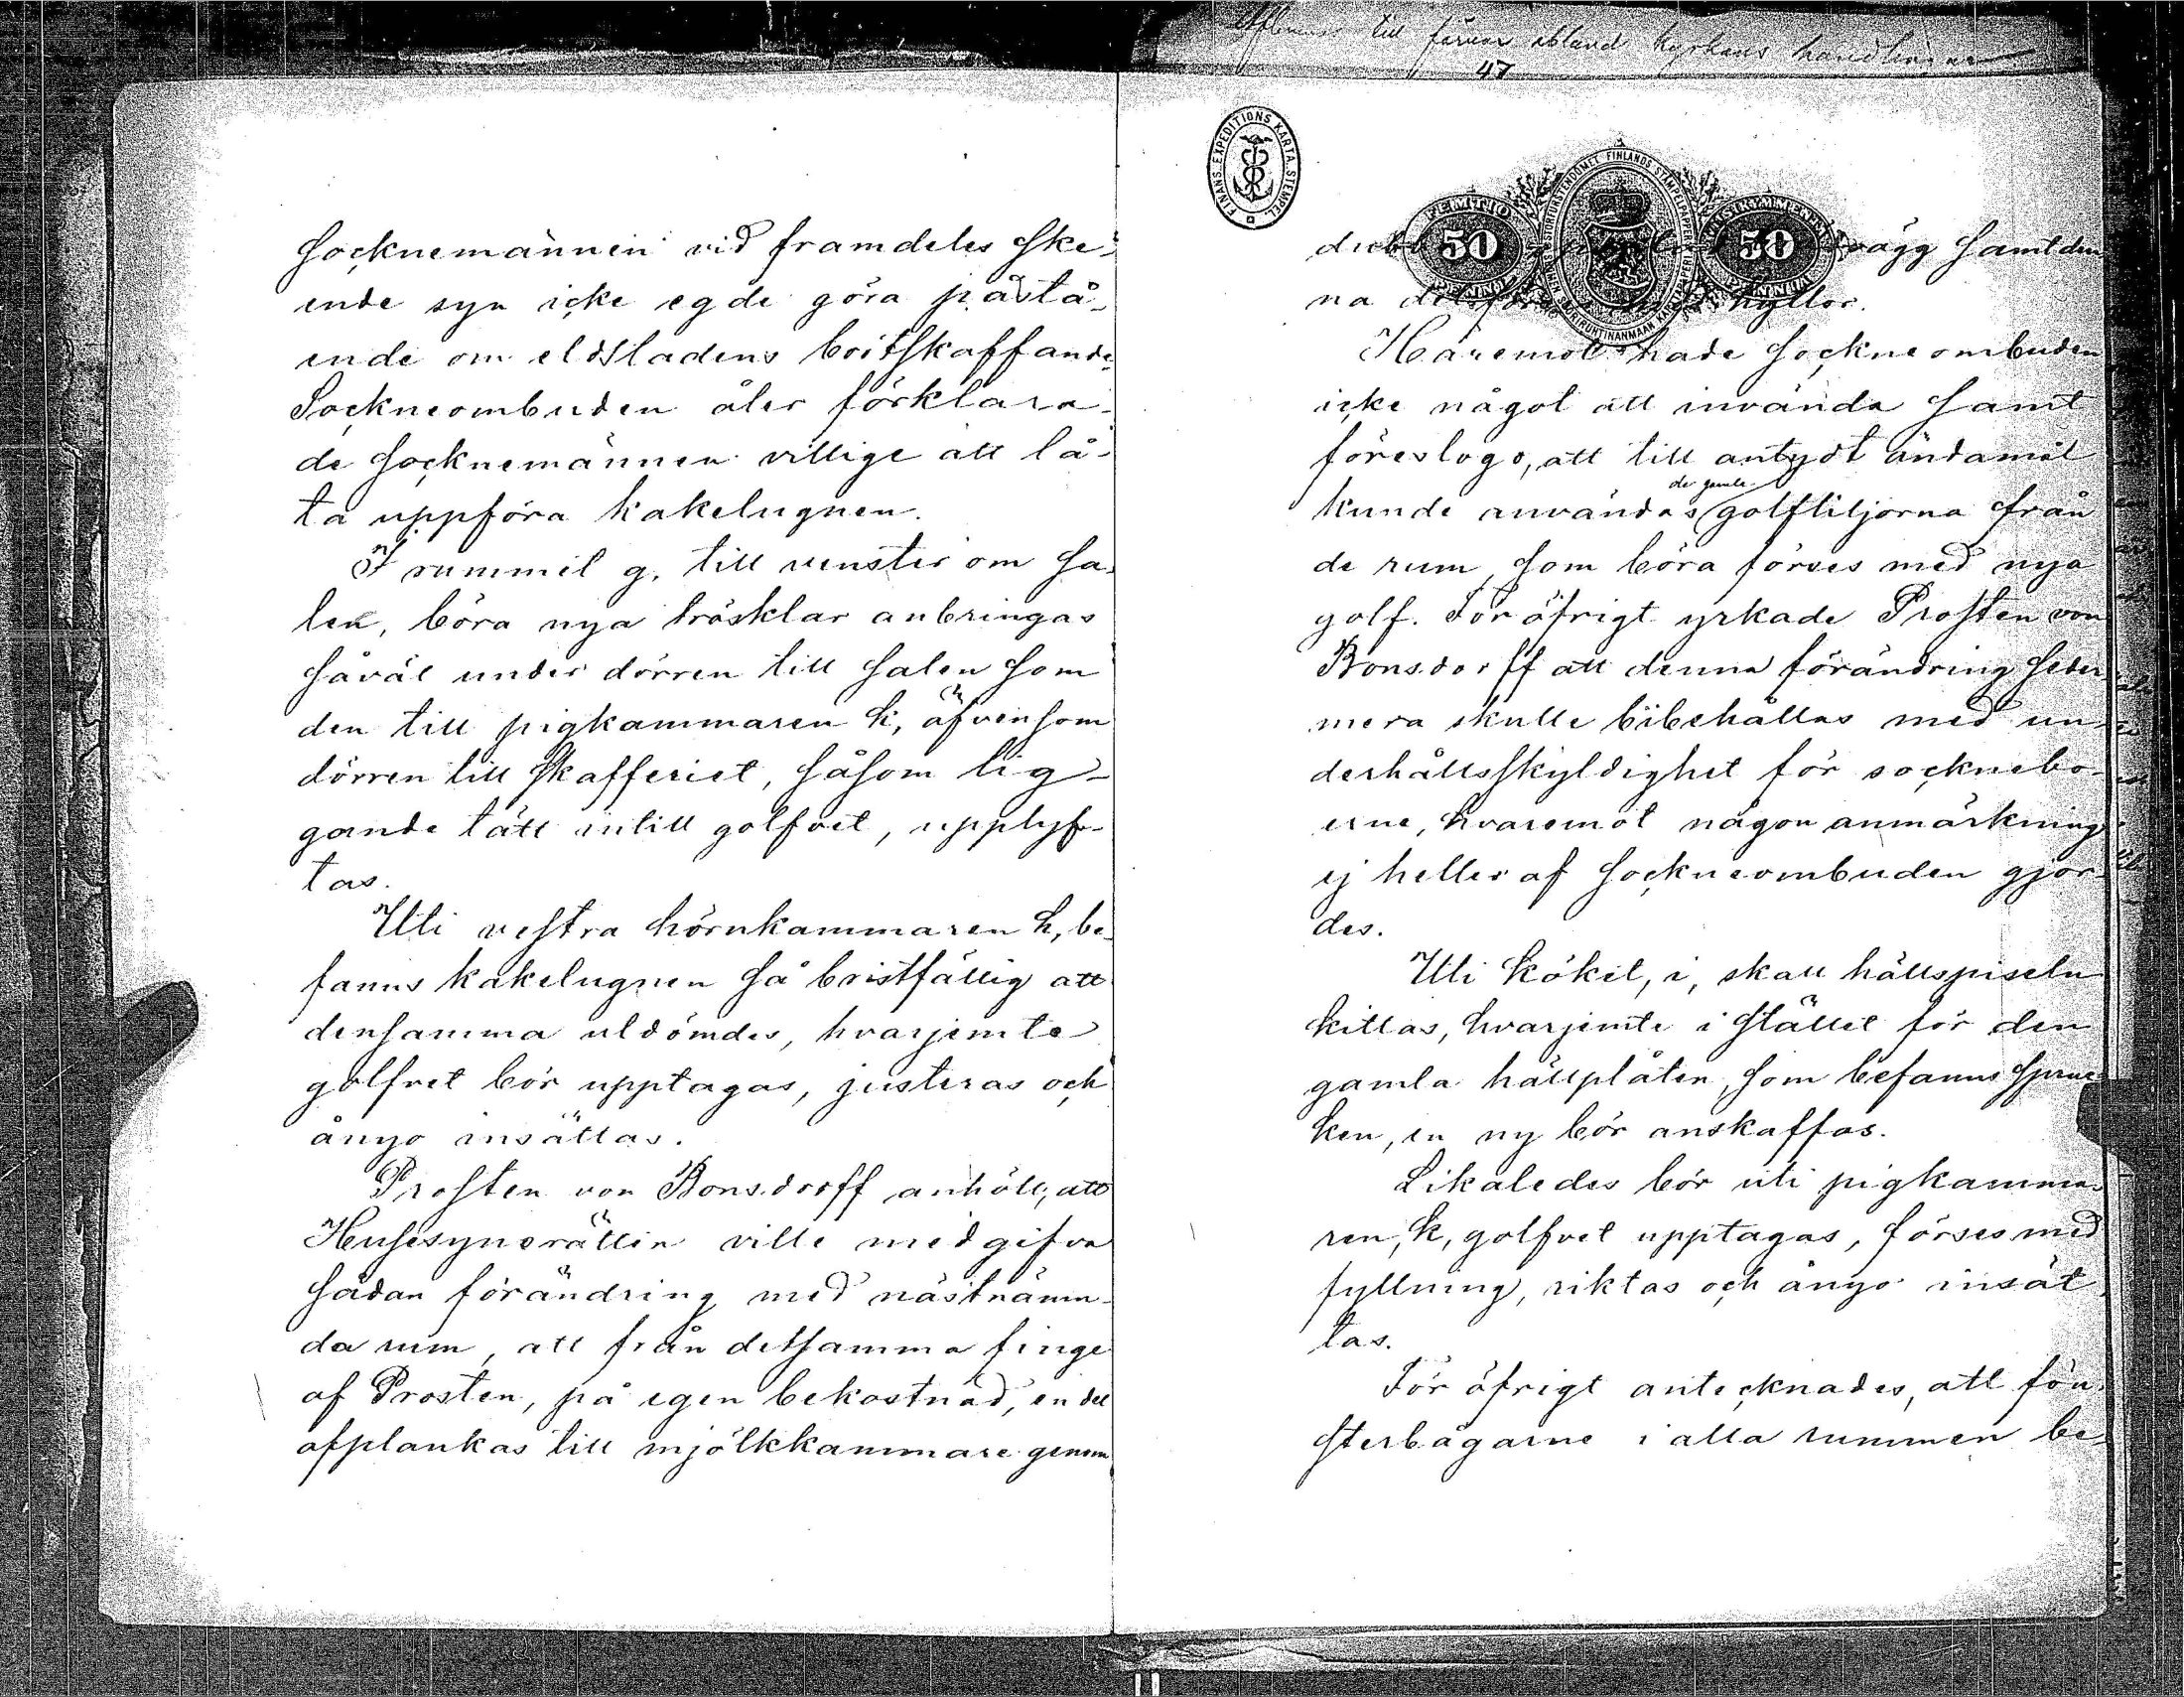 Socknemännen vid framdeles ske-
ende syn icke egde göra påstå-
ende om eldstadens bortskaffande.
Sockneombuden åter förklara-
de socknemännen villige att lå-
ta uppföra kakelugnen.
I rummet g, till venster om sa-
len, böra nya trösklar anbringas
såväl under dörren till salen som
den till pigkammaren k, äfvensom
dörren till skafferiet, såsom lig-
gande tätt intill golfvet, upplyf-
tas.
Uti vestra hörnkammaren h, be-
fanns kakelugnen så bristfällig att
densamma utdömdes, hvarjemte
golfvet bör upptagas, justeras och
ånyo insättas.
Prosten von Bonsdorff anhöll, att
Husesynerätten ville medgifva
sådan förändring med nästnämn-
da rum, att från detsamma finge
af Prosten, på egen bekostnad, en del
afplankas till mjölkkammare genom
till ibland kyrkans handlingar
47
FINANS EXPEDITIONS KARTA STEMPEL
FEMTIO 50 PENNI
STORFURSTENDÖMET FINLANDS STÄMPELPAPPER
SUOMEN SUURIRUHTINANMAAN
VIISIKYMMENTÄ 50 PENNIÄ
vägg samt den-
na hyllor.
Häremot hade sockneombuden
icke något att invända samt
föreslogo, att till antydt ändamål
de gamla
kunde användas golftiljorna från
de rum, som böra förses med nya
golf. För öfrigt yrkade Prosten von
Bonsdorff att denna förändring seder-
mera skulle bibehållas med un-
derhållsskyldighet för socknebo-
erne, hvaremot någon anmärkning
ej heller af sockneombuden gjor-
des.
Uti köket, i, skall hällspiseln
kittas, hvarjemte i stället för den
gamla hällplåten, som befanns spruc-
ken, en ny bör anskaffas.
Likaledes bör uti pigkamma-
ren, k, golfvet upptagas, förses med
fyllning, riktas och ånyo insät-
tas.
För öfrigt antecknades, att fön-
sterbågarne i alla rummen be-